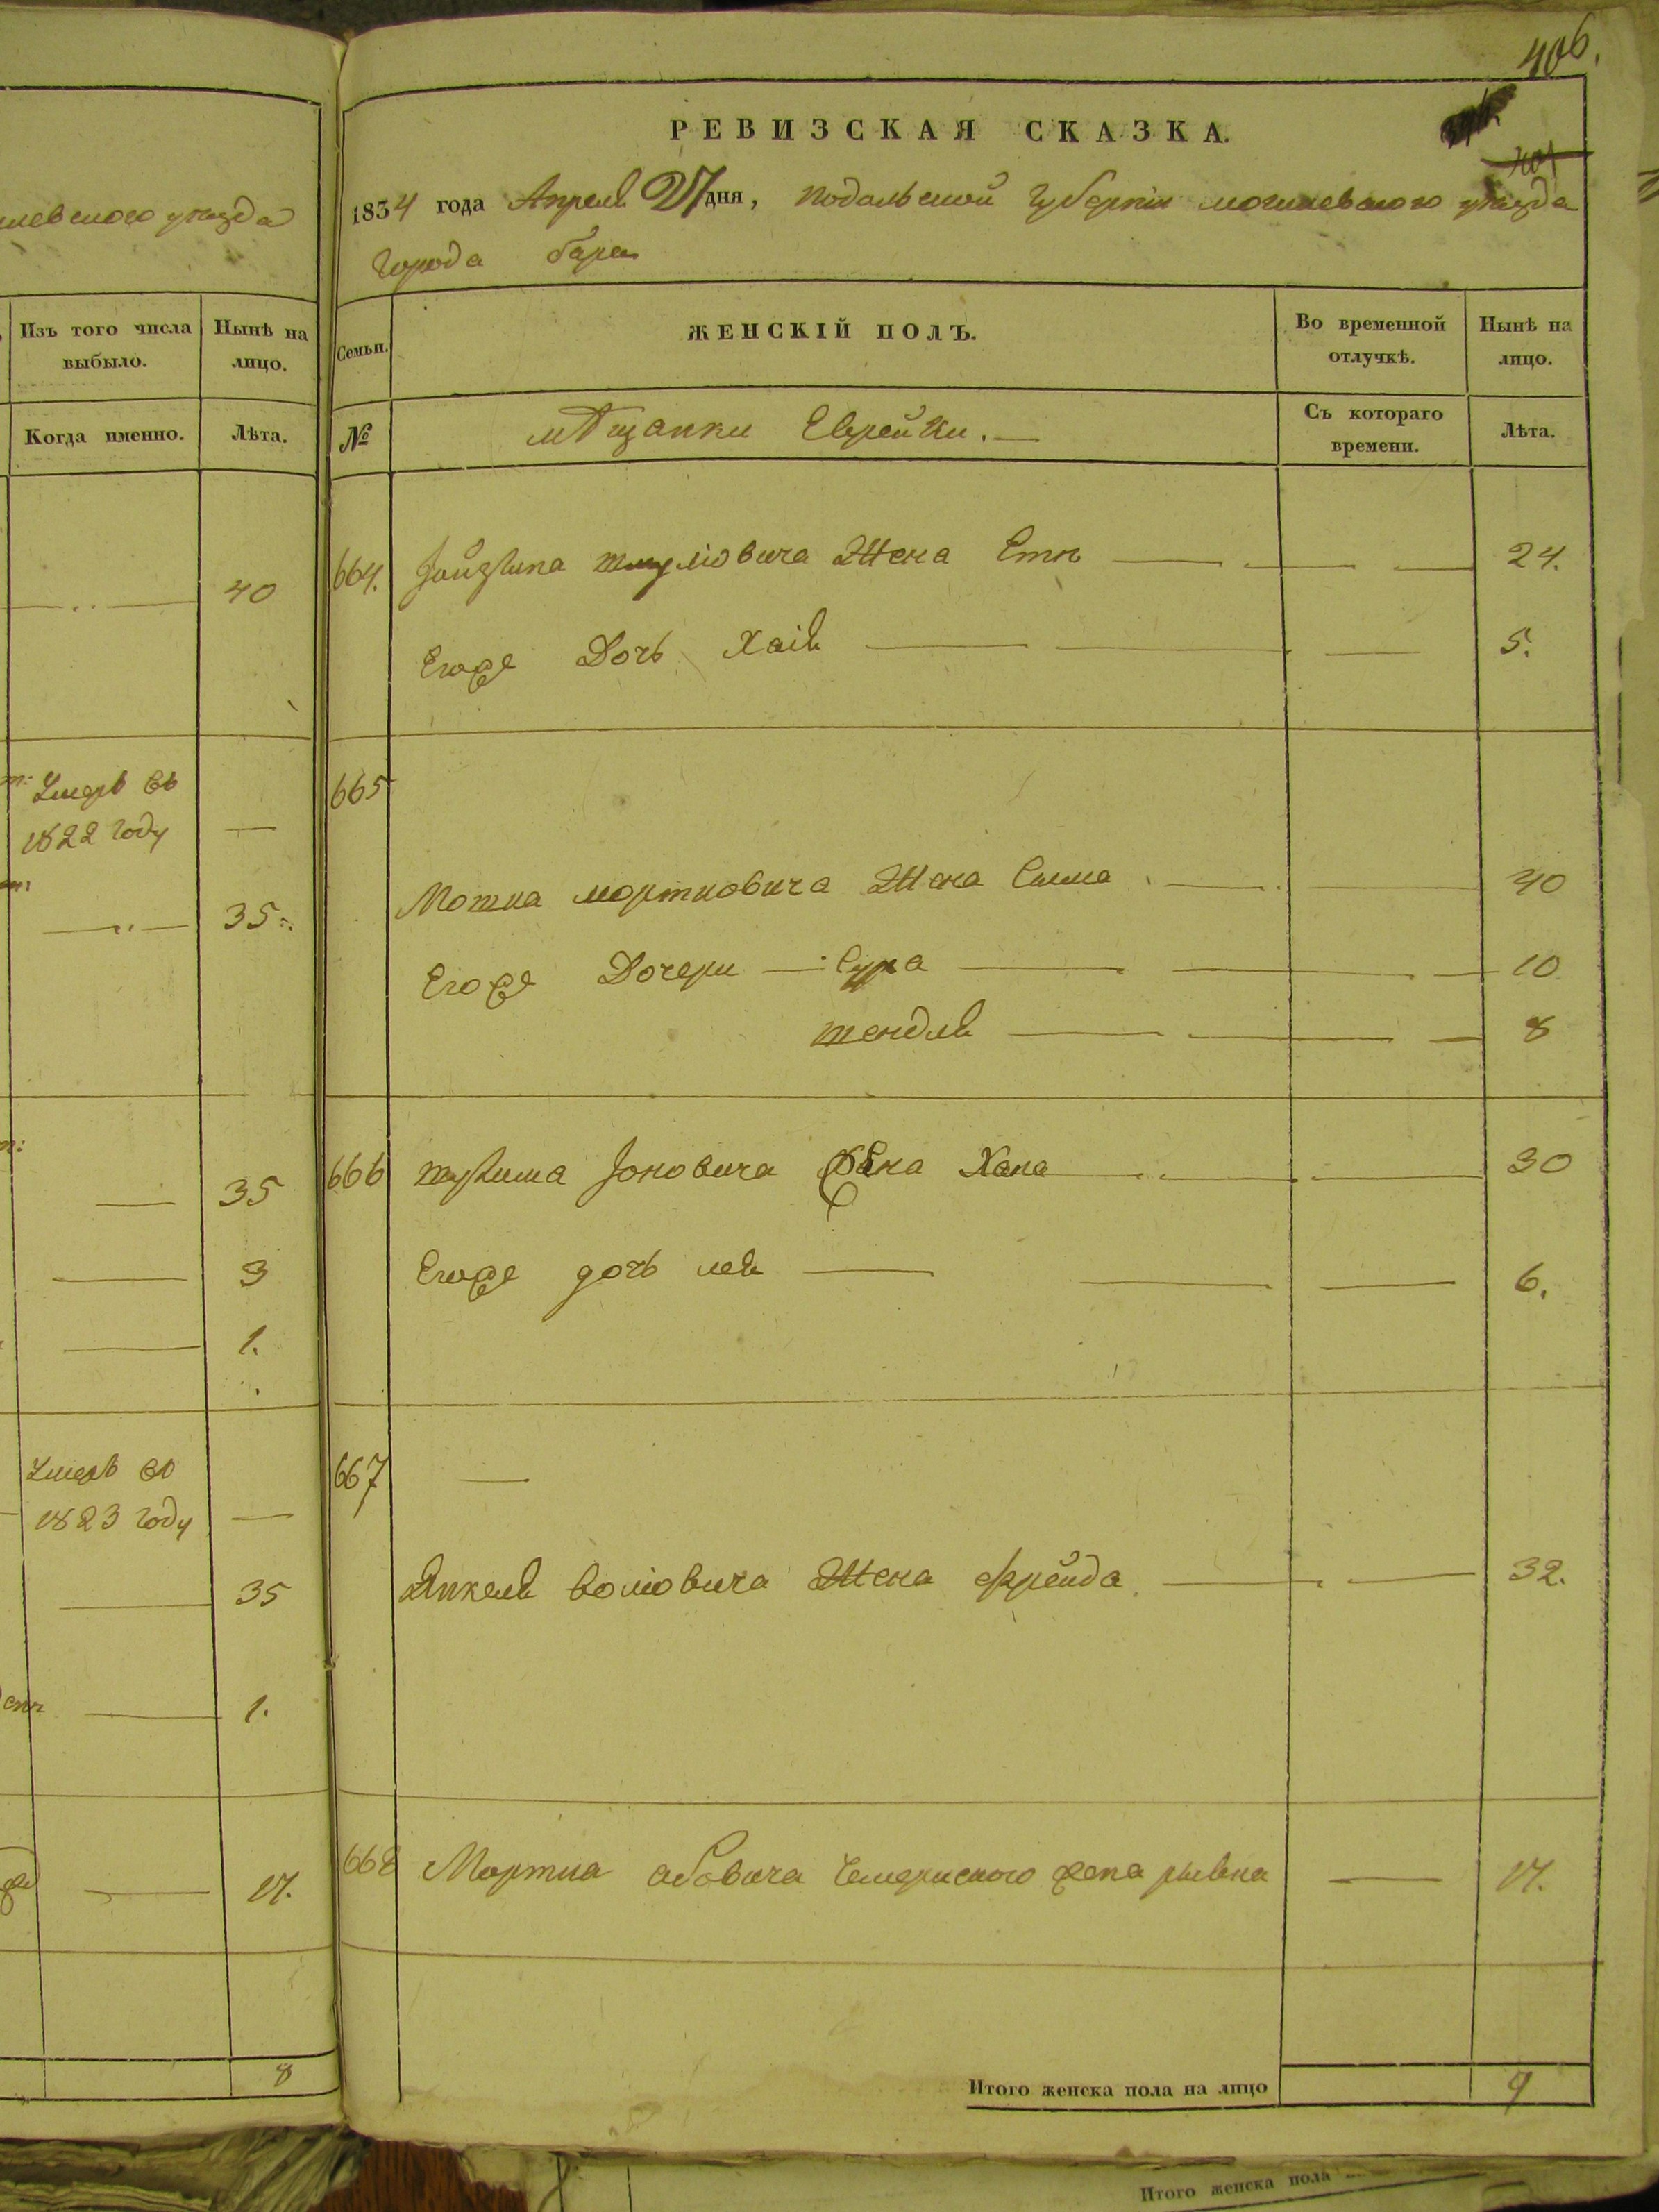 406.
РЕВИЗСКАЯ СКАЗКА.
1834 года Апреля 27 дня, Подольской Губернiи могилевского уѣзда
города бара
Семьи.
ЖЕНСКIЙ ПОЛЪ.
Во временной отлучкѣ.
Нынѣ на лицо.
№
мѣщанки Еврейки.
Съ котораго времени.
Лѣта.
664. Жена Етя 24.
Егоже Дочь Хаiя 5.
665
Мотка мортковича Жена Сима 40
Егоже Дочери Сура 10
шендля 8
666 Iоновича Жена Хана 30
Егоже дочь лея 6.
667
Янкеля волiовича Жена фрейда 32.
668 Мортка абовича Чемериского жена ривка 17.
Итого женска пола на лицо 9
левского уѣзда
Изъ того числа выбыло.
Нынѣ на лицо.
Когда именно.
Лѣта.
40
Умеръ въ
1822 году
35
35
3
1.
Умеръ въ
1823 году
35
1.
17.
8
Итого женска пола